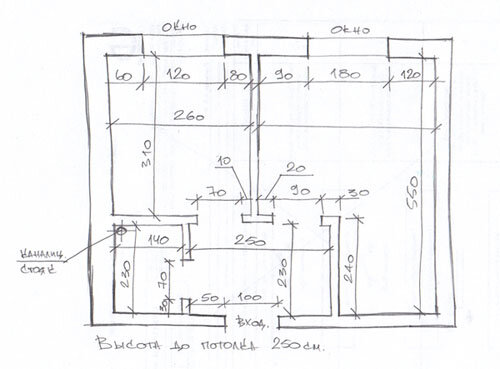 ОКНО ОКНО
60 120 80 90 180 120
260
310
10 20
70 90 30
550
КАНАЛИЗ. СТОЯК
140 250
230 70 30 230 240
50 100
ВХОД.
ВЫСОТА ДО ПОТОЛКА 250 СМ.